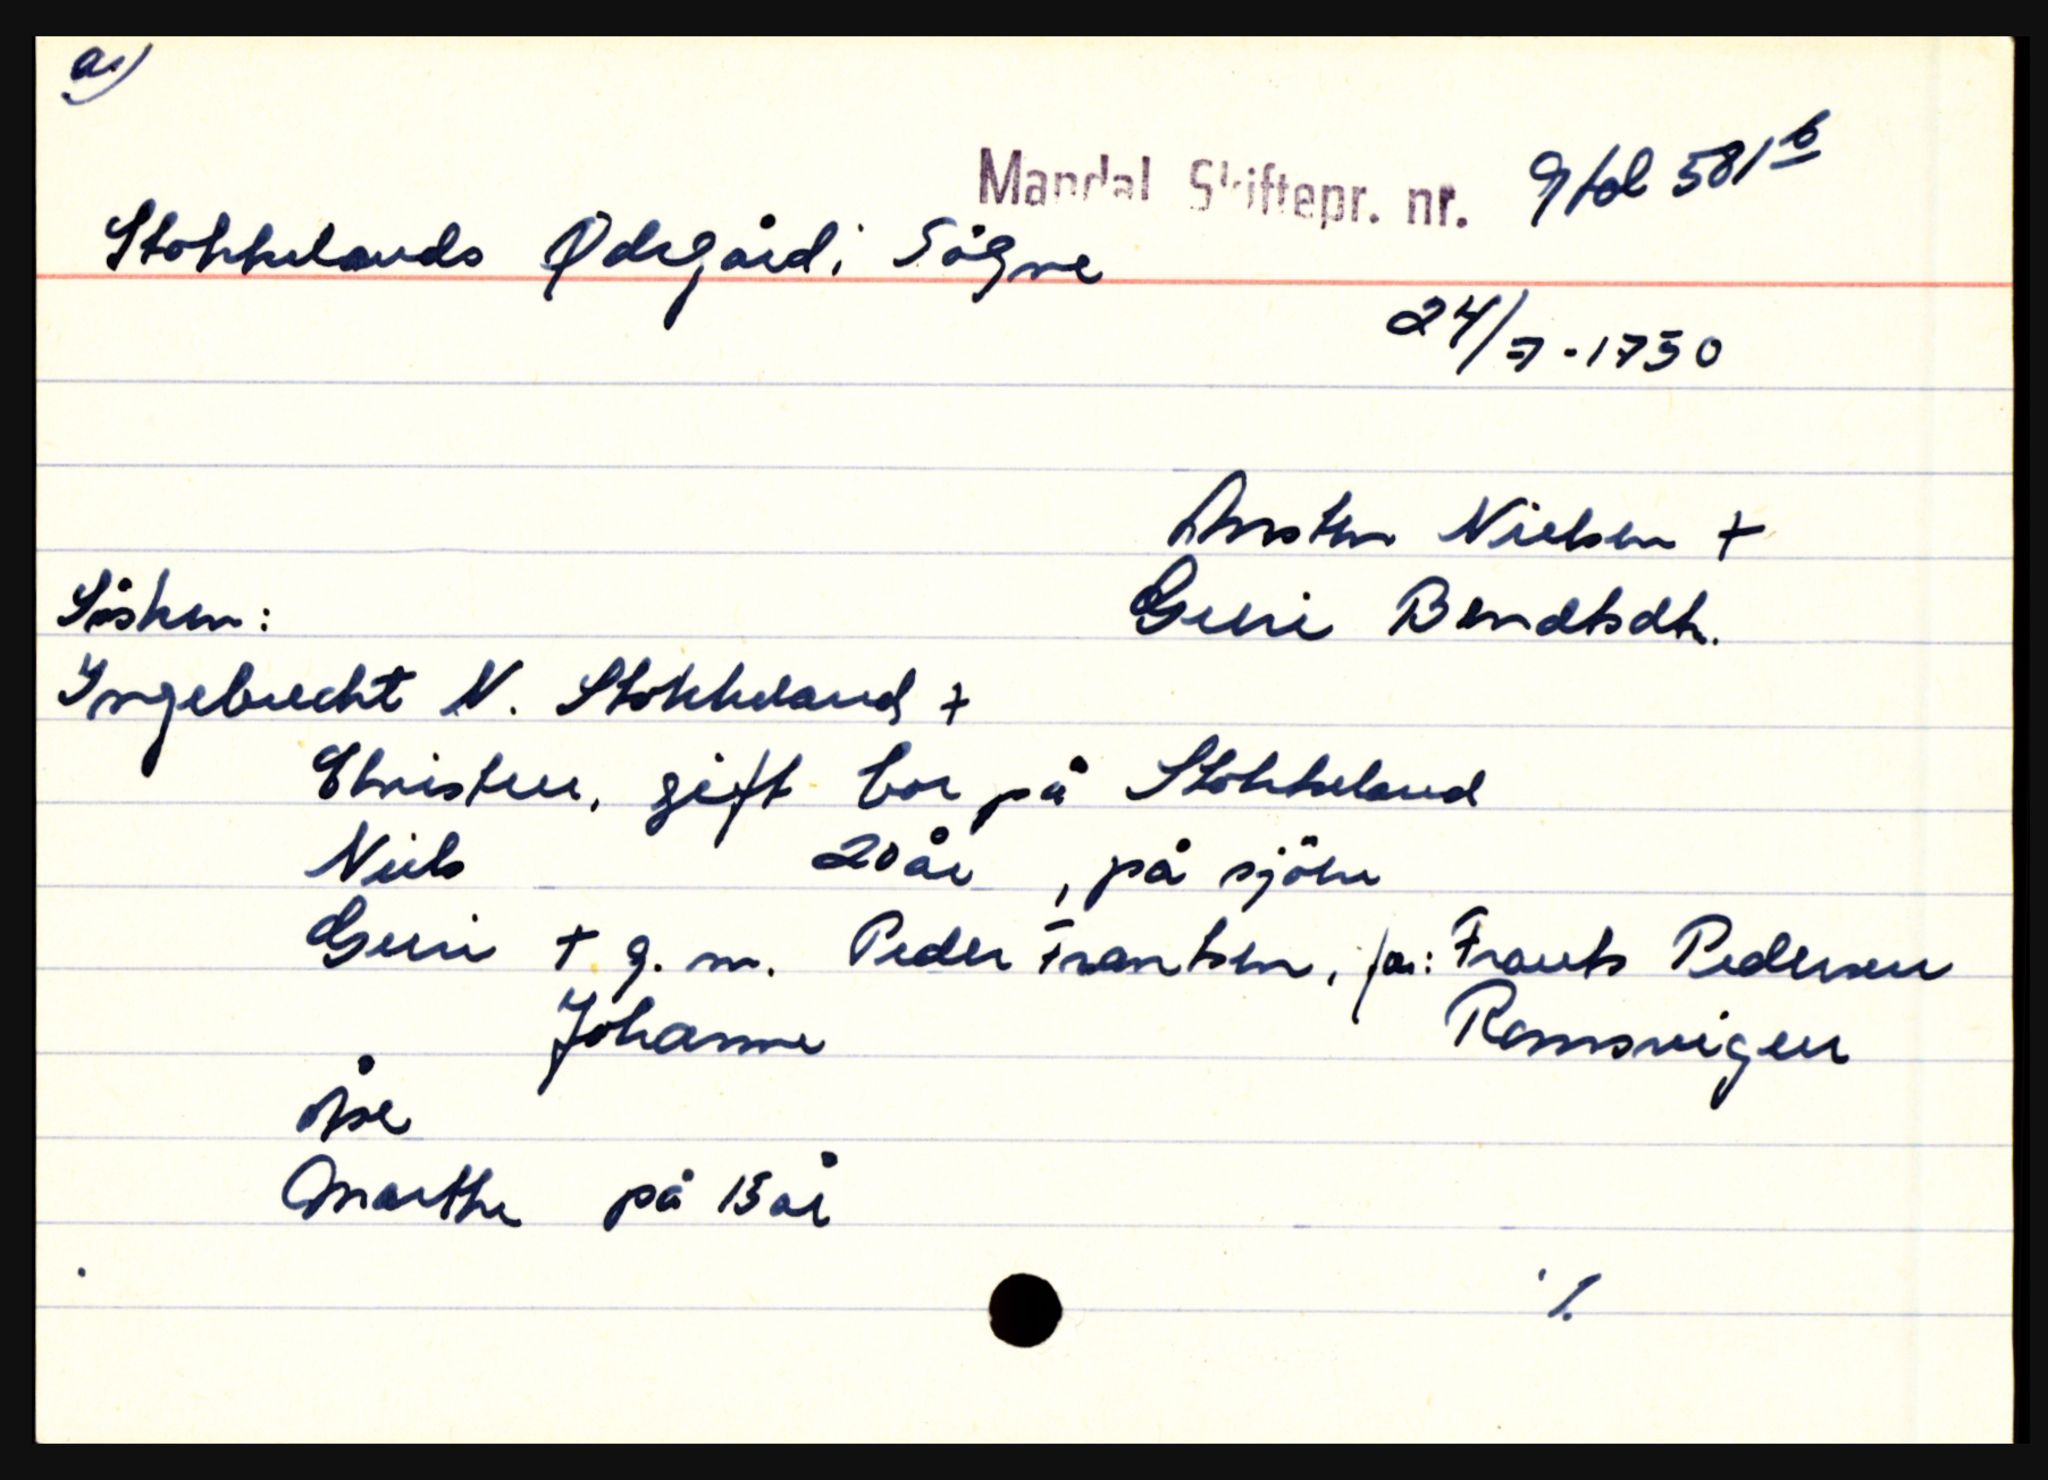 a)
Mandal Skiftepr. nr. 9 fol 581 b
Stokkelands Ødegård i Søgne
24/7-1750
Ansten Nielsen +
Søsken: Guri Bendtsdtr.
Ingebrecht N. Stokkeland +
Christen, gift bor på Stokkeland
Niels 20 år, på sjöen
Guri + g. m. Peder Frantsen, far: Frants Pedersen
Johanne Romsvigen
Åse
Marthe på 15 år
./.